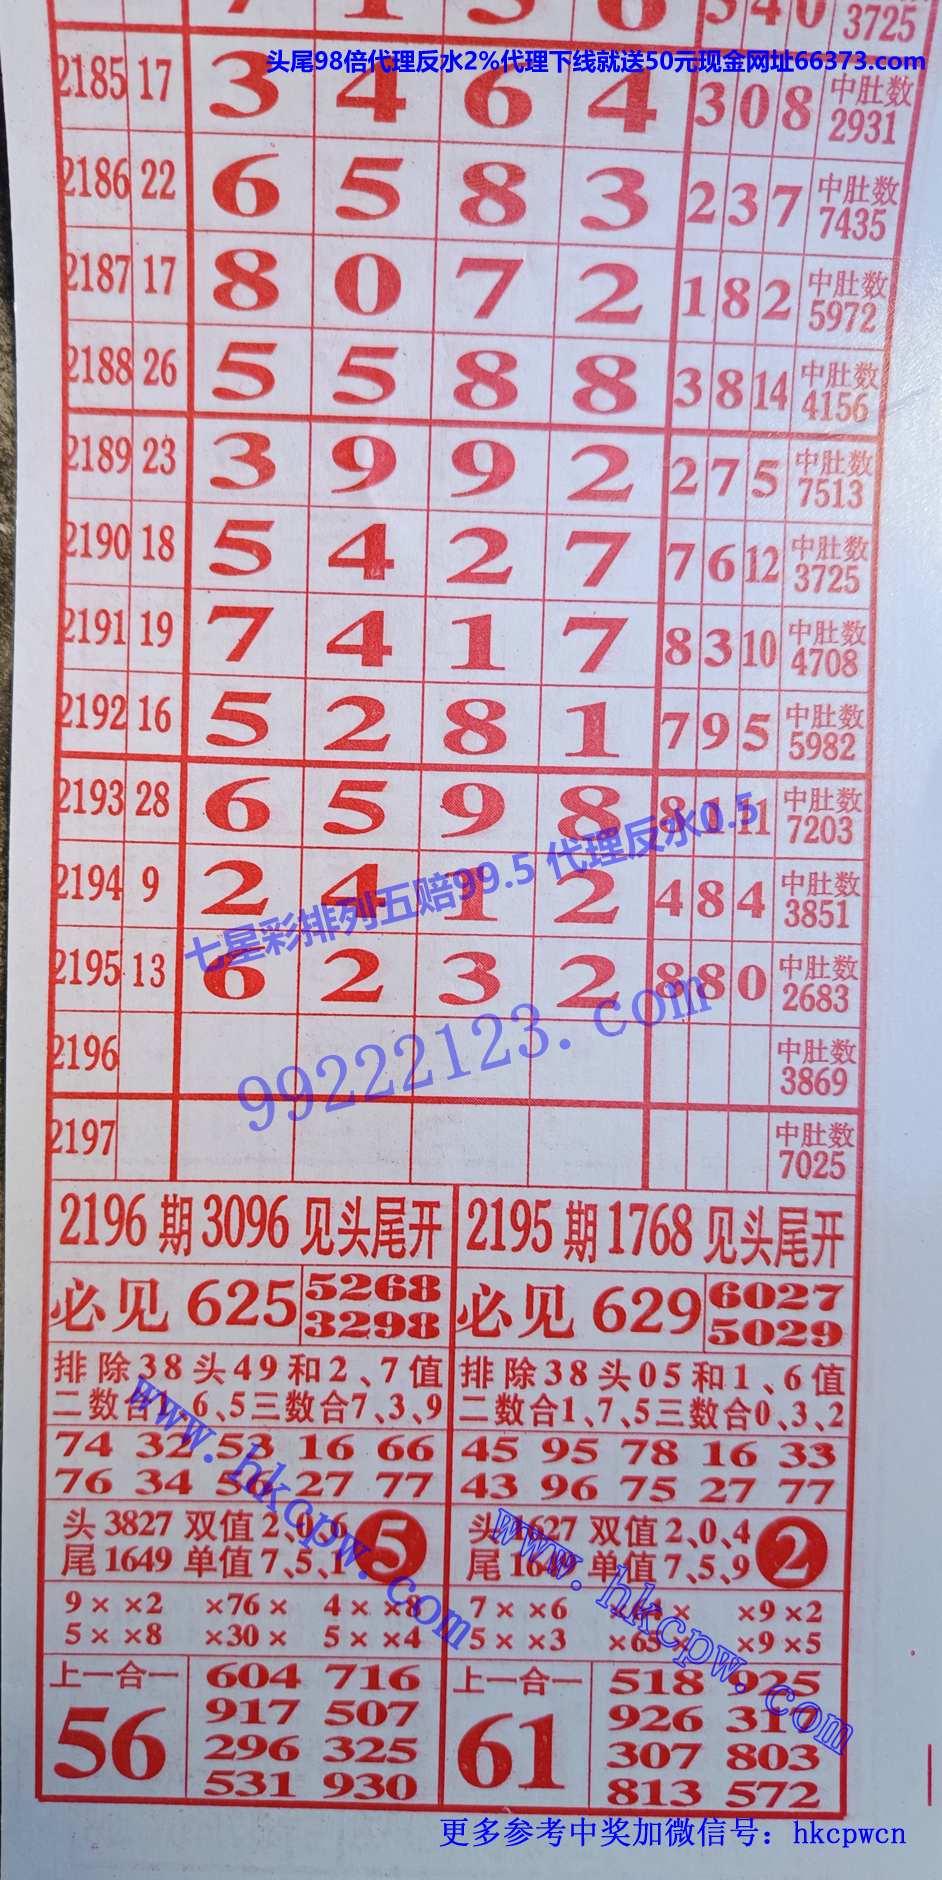 7 1 3 6 5 4 0 3725
头尾98倍代理反水2%代理下线就送50元现金网址66373.com
2185 17 3 4 6 4 3 0 8 中肚数 2931
2186 22 6 5 8 3 2 3 7 中肚数 7435
2187 17 8 0 7 2 1 8 2 中肚数 5972
2188 26 5 5 8 8 3 8 14 中肚数 4156
2189 23 3 9 9 2 2 7 5 中肚数 7513
2190 18 5 4 2 7 7 6 12 中肚数 3725
2191 19 7 4 1 7 8 3 10 中肚数 4708
2192 16 5 2 8 1 7 9 5 中肚数 5982
2193 28 6 5 9 8 8 1 11 中肚数 7203
七星彩排列五赔99.5 代理反水0.5
2194 9 2 4 1 2 4 8 4 中肚数 3851
2195 13 6 2 3 2 8 8 0 中肚数 2683
99222123.com
2196 中肚数 3869
2197 中肚数 7025
2196期3096见头尾开
必见 625 5268
3298
排除38头49和2、7值
二数合1、6、5三数合7、3、9
74 32 53 16 66
76 34 56 27 77
头3827 双值2、0、6
尾1649 单值7、5、1
5
9× ×2 ×76× 4× ×8
5× ×8 ×30× 5× ×4
上一合一
56
604 716
917 507
296 325
531 930
www.hkcpw.com
2195期1768见头尾开
必见 629 6027
5029
排除38头05和1、6值
二数合1、7、5三数合0、3、2
45 95 78 16 33
43 96 75 27 77
头1627 双值2、0、4
尾1649 单值7、5、9
2
7× ×6 ×9×2
5× ×3 ×65× ×9×5
上一合一
61
518 925
926 317
307 803
813 572
www.hkcpw.com
更多参考中奖加微信号：hkcpwcn